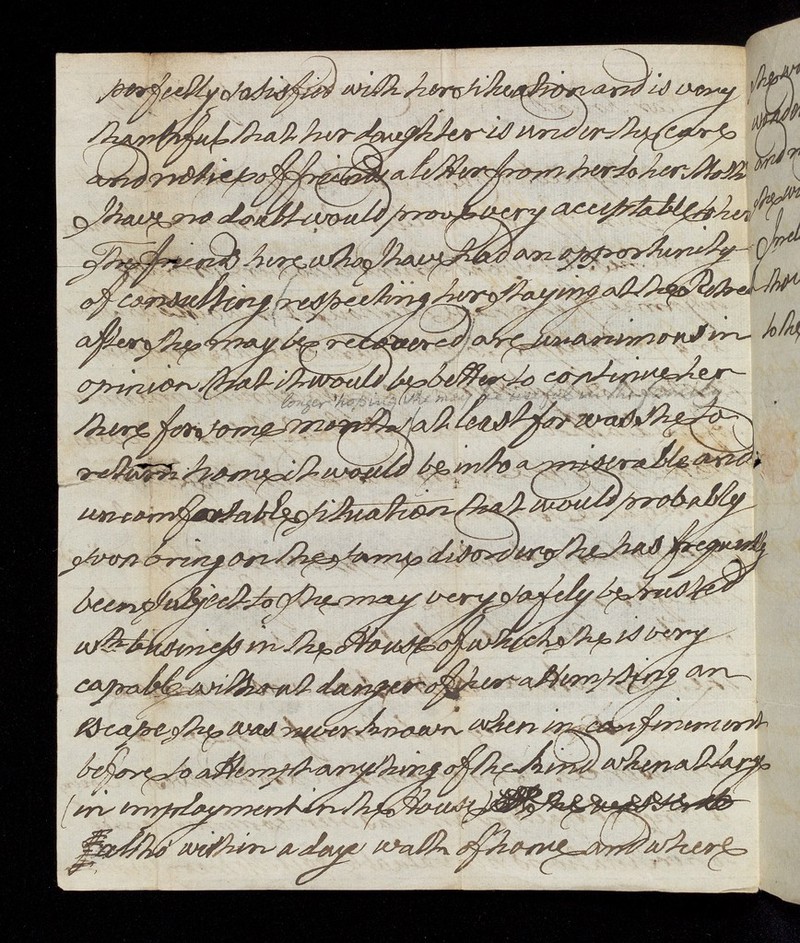 perfectly satisfied with her situation and is very
thankful that her daughter is under the care
and notice of friends a letter from her to her Moth
I have no doubt would prove very acceptable to her
The friends here who have had an opportunity
of consulting respecting her staying at the Retrea
after she may be recovered are unanimous in
opinion that it would be better to continue her
longer hoping she may be useful in the family
there for some months at least for was she to
return home it would be into a miserable and
uncomfortable situation that would probably
soon bring on the same disorder she has frequently
been subject to she may very safely be trusted
wth business in the House of which she is very
capable without danger of her attempting an
escape she was never known when in confinement
before to attempt any thing of the kind when at large
(in imployment in the House)
altho' within a days walk of home and where
she
and
to the